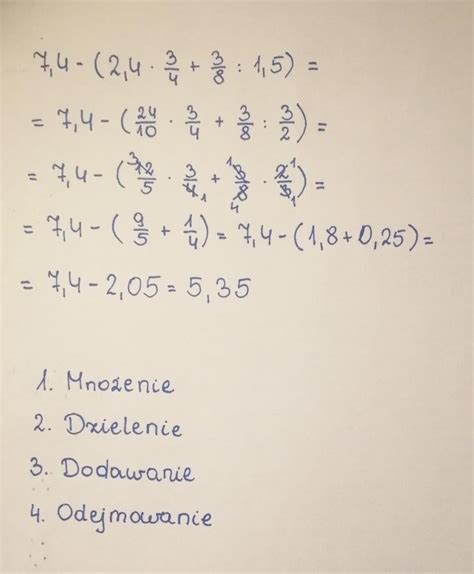 7,4 - (2,4 · 3/4 + 3/8 : 1,5) =
= 7,4 - (24/10 · 3/4 + 3/8 : 3/2) =
= 7,4 - (³12/5 · 3/4₁ + ¹3/8₄ · 2¹/3₁) =
= 7,4 - (9/5 + 1/4) = 7,4 - (1,8 + 0,25) =
= 7,4 - 2,05 = 5,35
1. Mnożenie
2. Dzielenie
3. Dodawanie
4. Odejmowanie